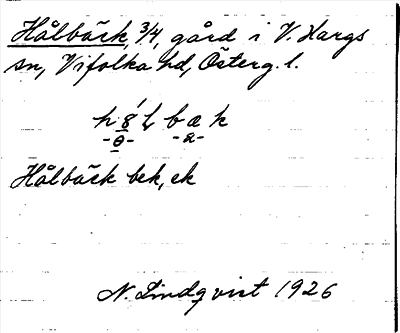 Hålbäck, 3/4, gård i V. Hargs
sn, Vifolka hd, Österg. l.
Hålbäck bek, ek
N. Lindqvist 1926